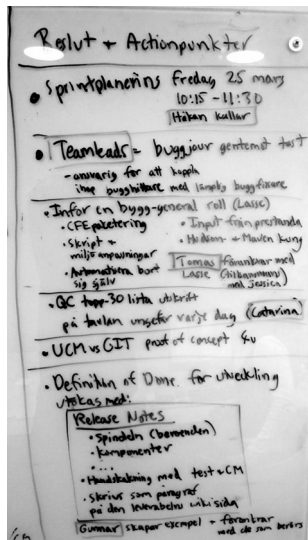 Beslut + Actionpunkter
• Sprintplanering fredag 25 mars
10:15 - 11:30
Håkan kallar
• Teamleads = buggjour gentemot test
- ansvarig för att koppla
ihop bugghittare med lämplig buggfixare
• Inför en bygg-general roll (Lasse)
• CFE paketering
• Skript +
miljöanpassningar
• Automatisera bort
sig själv
• Input från prestanda
• Hudson + Maven kung
Tomas förankrar med
Lasse (tillsammans
med Jessica)
• QC topp-30 lista utskrift
på tavlan ungefär varje dag (Catarina)
• UCM vs GIT proof of concept
• Definition of Done för utveckling
utökas med:
Release Notes
• Spindeln (beroenden)
• Komponenter
• ....
• Handskakning med test + CM
• Skrivs som paragraf
på den leverabelns wikisida
Gunnar skapar exempel + förankrar
med de som berörs